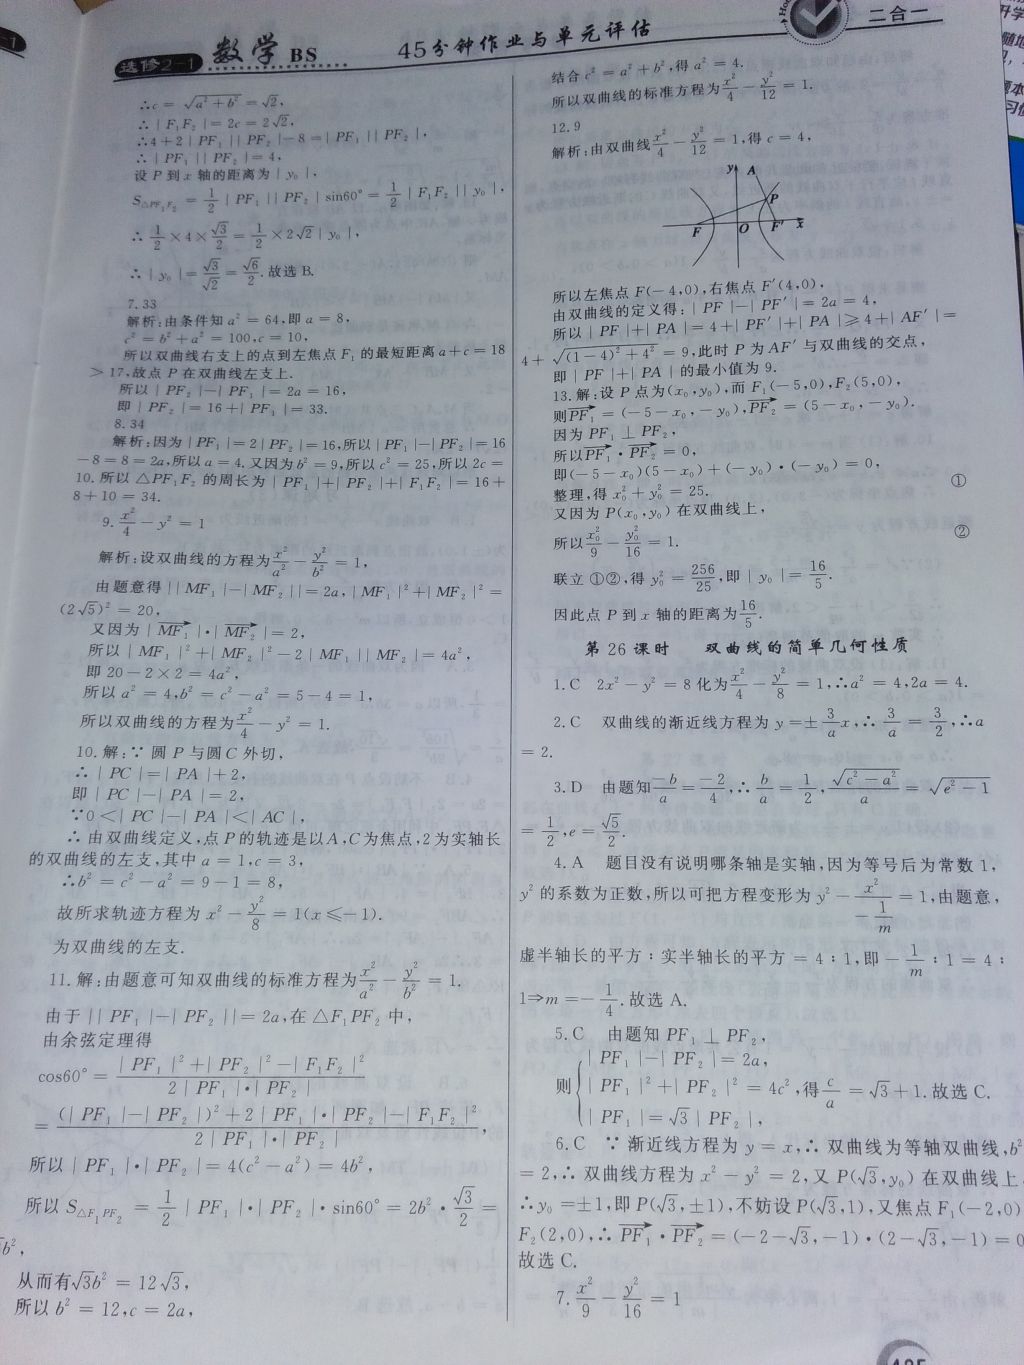 选修2-1 数学 BS 45分钟作业与单元评估 二合一
∴c = √(a²+b²) = √2,
∴|F₁F₂| = 2c = 2√2,
∴4+2|PF₁||PF₂|-8=|PF₁||PF₂|,
∴|PF₁||PF₂|=4,
设 P 到 x 轴的距离为|y₀|,
S△PF₁F₂ = 1/2|PF₁||PF₂|sin60° = 1/2|F₁F₂||y₀|,
∴1/2×4×√3/2 = 1/2×2√2|y₀|,
∴|y₀| = √3/√2 = √6/2. 故选 B.
7.33
解析:由条件知 a² = 64,即 a = 8,
c² = b² + a² = 100,c = 10,
所以双曲线右支上的点到左焦点 F₁ 的最短距离 a+c = 18
> 17,故点 P 在双曲线左支上.
所以|PF₂|-|PF₁| = 2a = 16,
即|PF₂| = 16+|PF₁| = 33.
8.34
解析:因为|PF₁| = 2|PF₂|=16,所以|PF₁|-|PF₂|=16
-8=8=2a,所以 a = 4. 又因为 b² = 9,所以 c² = 25,所以 2c =
10. 所以 △PF₁F₂ 的周长为|PF₁|+|PF₂|+|F₁F₂| = 16 +
8+10 = 34.
9. x²/4 - y² = 1
解析:设双曲线的方程为 x²/a² - y²/b² = 1,
由题意得||MF₁|-|MF₂||= 2a,|MF₁|²+|MF₂|² =
(2√5)² = 20,
又因为|MF₁→|·|MF₂→| = 2,
所以|MF₁|²+|MF₂|²-2|MF₁||MF₂| = 4a²,
即 20-2×2 = 4a²,
所以 a² = 4,b² = c²-a² = 5-4 = 1,
所以双曲线的方程为 x²/4 - y² = 1.
10. 解:∵ 圆 P 与圆 C 外切,
∴|PC|=|PA|+2,
即|PC|-|PA|=2,
∵0<|PC|-|PA|<|AC|,
∴ 由双曲线定义,点 P 的轨迹是以 A,C 为焦点,2 为实轴长
的双曲线的左支,其中 a = 1,c = 3,
∴b² = c²-a² = 9-1 = 8,
故所求轨迹方程为 x² - y²/8 = 1(x≤-1).
为双曲线的左支.
11. 解:由题意可知双曲线的标准方程为 x²/a² - y²/b² = 1.
由于||PF₁|-|PF₂||= 2a,在 △F₁PF₂ 中,
由余弦定理得
cos60° = (|PF₁|²+|PF₂|²-|F₁F₂|²)/(2|PF₁|·|PF₂|)
= ((|PF₁|-|PF₂|)²+2|PF₁|·|PF₂|-|F₁F₂|²)/(2|PF₁|·|PF₂|),
所以|PF₁|·|PF₂| = 4(c²-a²) = 4b²,
所以 S△F₁PF₂ = 1/2|PF₁|·|PF₂|·sin60° = 2b²·√3/2 =
√3b²,
从而有√3b² = 12√3,
所以 b² = 12,c = 2a,
结合 c² = a²+b²,得 a² = 4.
所以双曲线的标准方程为 x²/4 - y²/12 = 1.
12.9
解析:由双曲线 x²/4 - y²/12 = 1,得 c = 4,
y A
P
F O F′ x
所以左焦点 F(-4,0),右焦点 F′(4,0),
由双曲线的定义得:|PF|-|PF′| = 2a = 4,
所以|PF|+|PA| = 4+|PF′|+|PA|≥4+|AF′|=
4+√((1-4)²+4²) = 9,此时 P 为 AF′ 与双曲线的交点,
即|PF|+|PA|的最小值为 9.
13. 解:设 P 点为(x₀,y₀),而 F₁(-5,0),F₂(5,0),
则PF₁→ = (-5-x₀,-y₀),PF₂→ = (5-x₀,-y₀).
因为 PF₁⊥PF₂,
所以PF₁→·PF₂→ = 0,
即(-5-x₀)(5-x₀)+(-y₀)·(-y₀) = 0,
整理,得 x₀²+y₀² = 25. ①
又因为 P(x₀,y₀) 在双曲线上,
所以 x₀²/9 - y₀²/16 = 1. ②
联立 ①②,得 y₀² = 256/25,即|y₀| = 16/5.
因此点 P 到 x 轴的距离为 16/5.
第 26 课时 双曲线的简单几何性质
1. C 2x²-y² = 8 化为 x²/4 - y²/8 = 1,∴a² = 4,2a = 4.
2. C 双曲线的渐近线方程为 y=±3/a x,∴3/a = 3/2,∴a
= 2.
3. D 由题知 -b/a = -2/4,∴b/a = 1/2,√(c²-a²)/a = √(e²-1)
= 1/2,e = √5/2.
4. A 题目没有说明哪条轴是实轴,因为等号后为常数 1,
y² 的系数为正数,所以可把方程变形为 y² - x²/(-1/m) = 1,由题意,
虚半轴长的平方:实半轴长的平方 = 4:1,即 -1/m:1 = 4:
1⇒m = -1/4. 故选 A.
5. C 由题知 PF₁⊥PF₂,
则{|PF₁|-|PF₂| = 2a,
|PF₁|²+|PF₂|² = 4c²,得 c/a = √3+1. 故选 C.
|PF₁| = √3|PF₂|,
6. C ∵ 渐近线方程为 y = x,∴ 双曲线为等轴双曲线,b²
= 2,∴ 双曲线方程为 x²-y² = 2,又 P(√3,y₀) 在双曲线上,
∴y₀ = ±1,即 P(√3,±1),不妨设 P(√3,1),又焦点 F₁(-2,0)
F₂(2,0),∴PF₁→·PF₂→ = (-2-√3,-1)·(2-√3,-1) = 0
故选 C.
7. x²/9 - y²/16 = 1